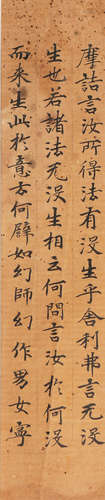 摩詰言汝所得法有没生乎舍利弗言无没
生也若諸法无没生相云何問言汝於何没
而来生此於意云何辟如幻師幻作男女寧